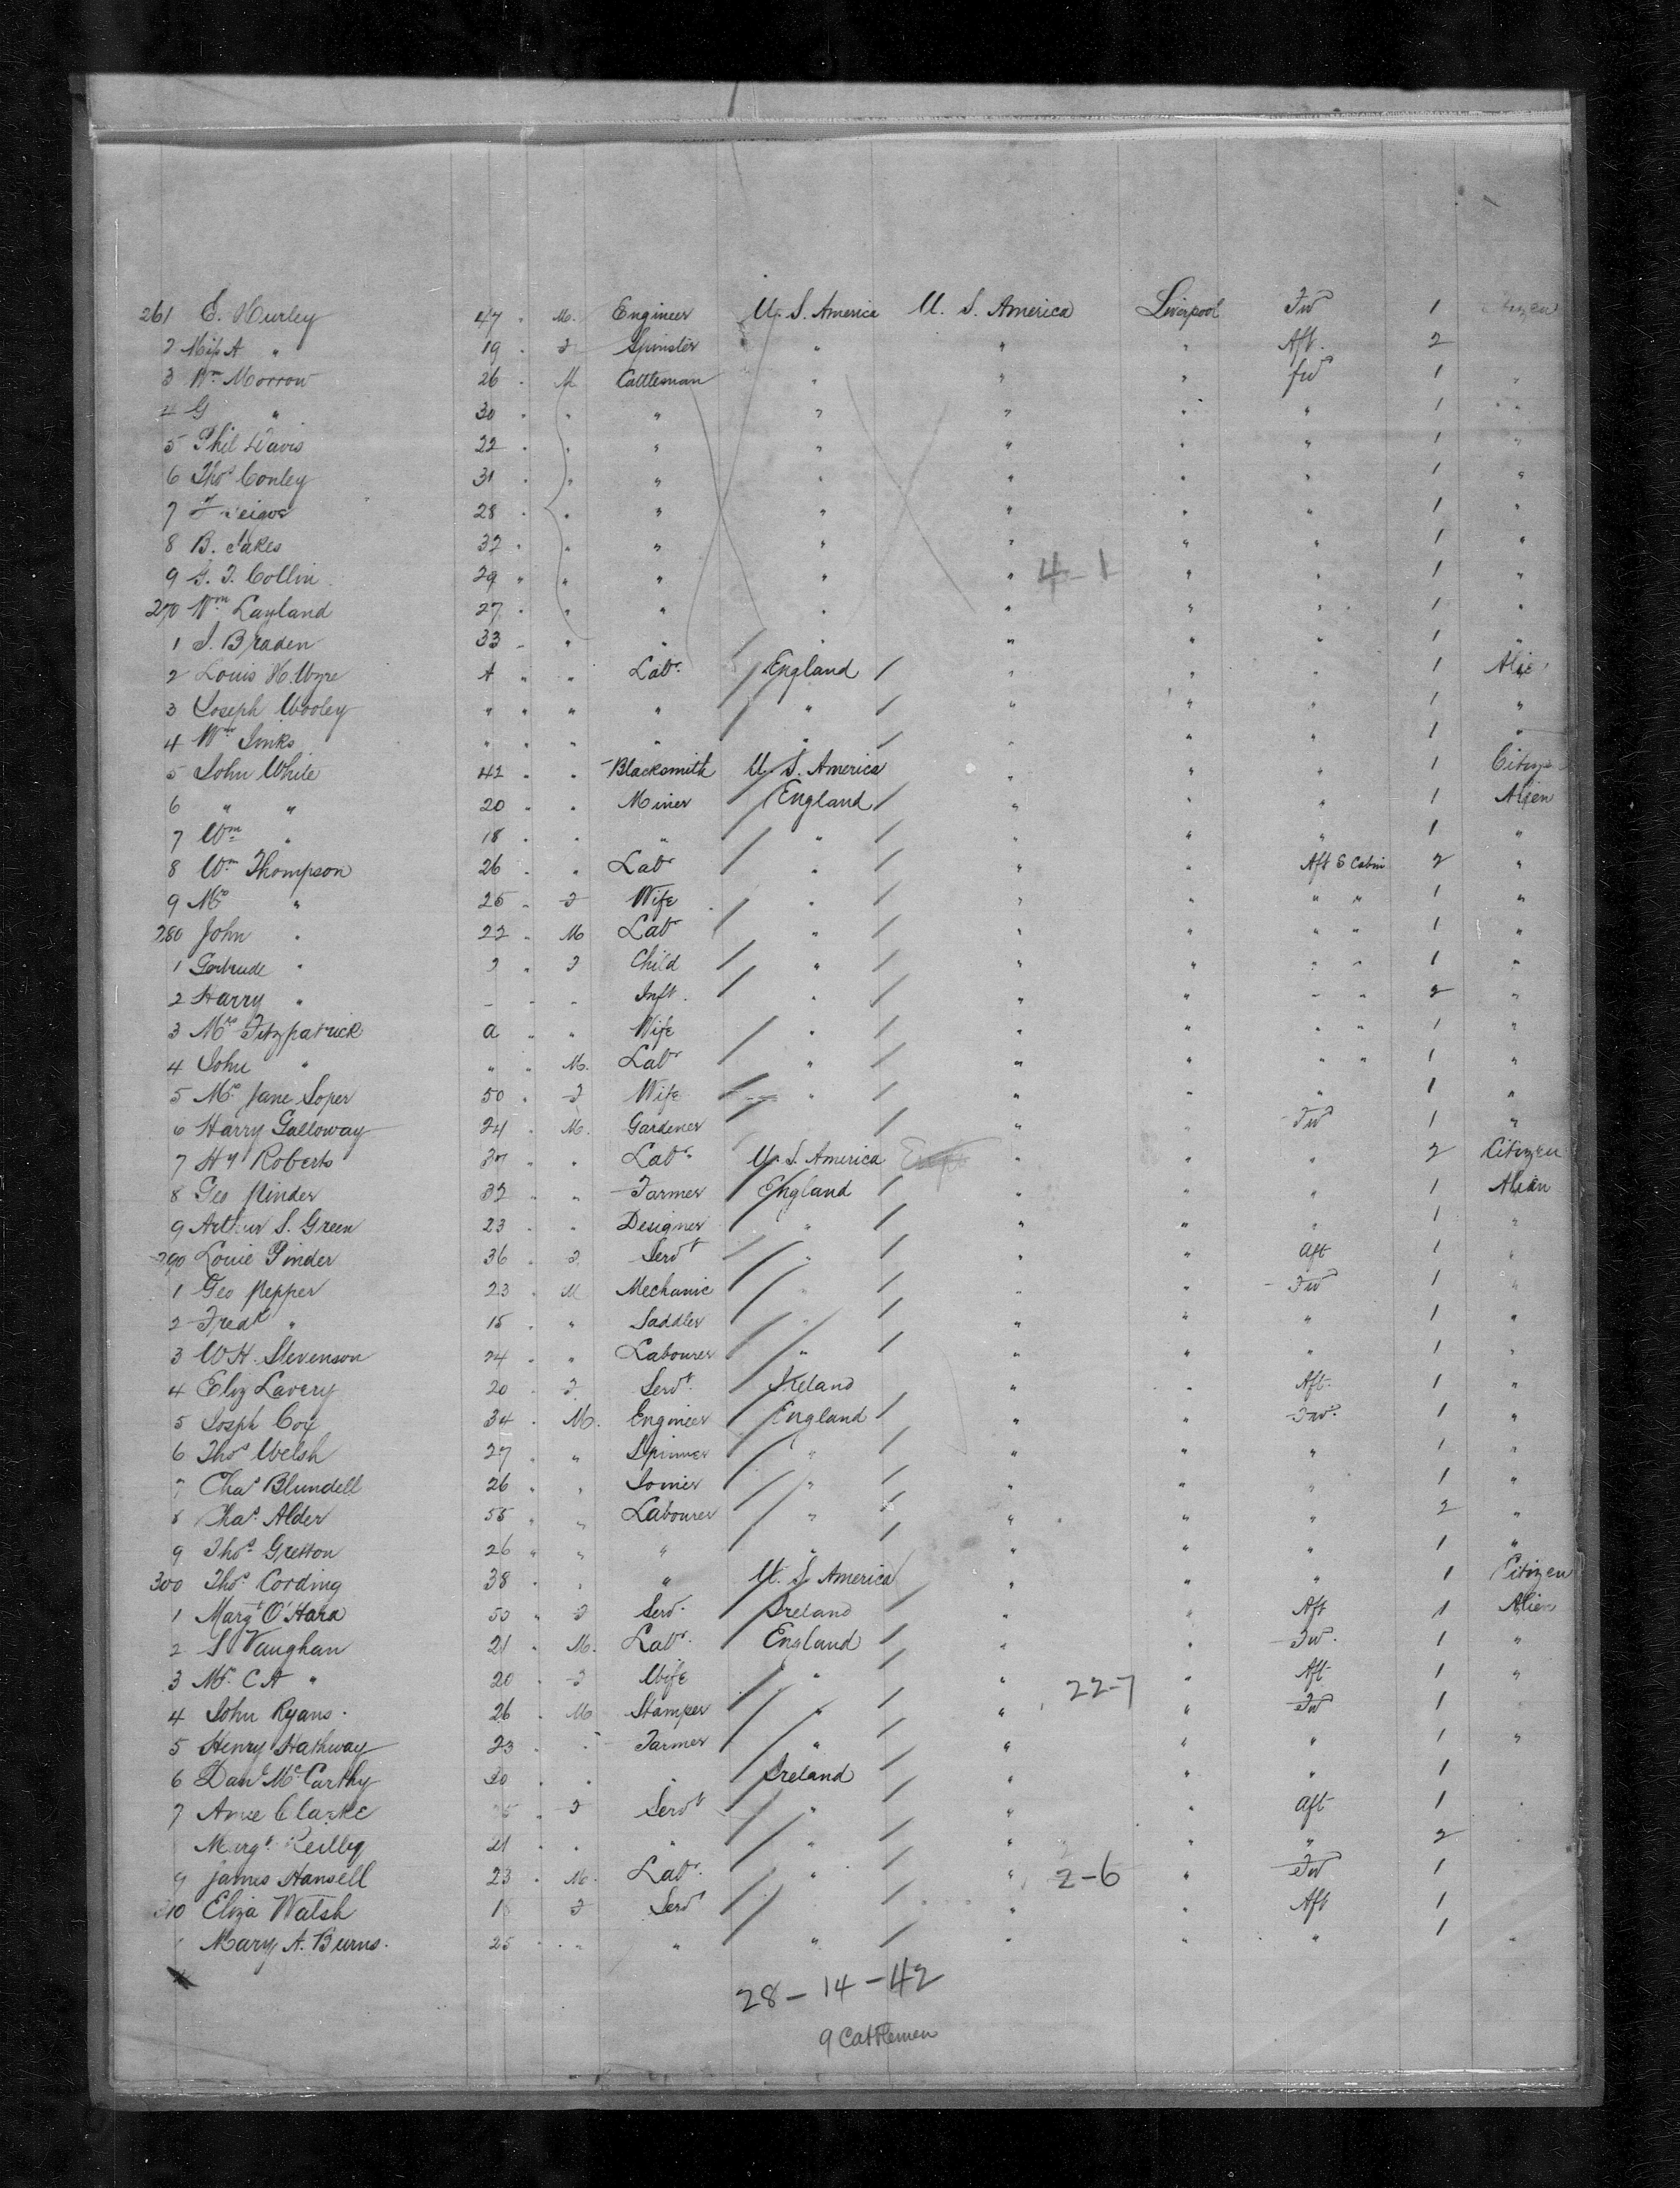 261 E. Hurley 47 " M. Engineer U. S. America U. S. America Liverpool Fwd 1 Citizen
2 Miss A " 19 " F Spinster " " " Aft. 2
3 Wm Morrow 26 " M Cattleman " " " fwd 1 "
4 G " 30 " " " " " " " 1 "
5 Phil Davis 22 " " " " " " " 1 "
6 Thos Conley 31 " " " " " " " 1 "
7 28 " " " " " " " 1 "
8 B. Jakes 32 " " " " " " " 1 "
9 G. T. Collin 29 " " " " " 4-1 " " 1 "
270 Wm Layland 27 " " " " " " " 1 "
1 J. Braden 33 " " " " " " " 1 "
2 Louis H. Wyre A " " Labr / England / " " " 1 Alie
3 Joseph Wooley " " " " / " / " " " 1 "
4 Wm Jinks " " " " " / " " " 1 "
5 John White 42 " " Blacksmith U. S. America " " " 1 Citizen
6 " " 20 " " Miner / England / " " " 1 Alien
7 Wm " 18 " " " / " / " " " 1 "
8 Wm Thompson 26 " " Labr / " / " " Aft S Cabin 2 "
9 Mrs " 25 " F Wife / " / " " " " 1 "
280 John " 22 " M Labr / " / " " " " 1 "
1 Gertrude " 2 " F Child / " / " " " " 1 "
2 Harry " - - - Inft. / " / " " " " 2 "
3 Mrs Fitzpatrick a " " Wife / " / " " " " 1 "
4 John " " " M. Labr / " / " " " " 1 "
5 Mrs Jane Soper 50 " F Wife / " / " " " 1 "
6 Harry Galloway 24 " M. Gardener / / " " Fwd 1 "
7 Hy Roberts 37 " " Labr U. S. America " " " 2 Citizen
8 Geo Pinder 32 " " Farmer / England / " " " 1 Alien
9 Arthur S. Green 23 " " Designer / " / " " " 1 "
290 Louie Pinder 36 " F Servt / " / " " Aft 1 "
1 Geo Pepper 23 " M Mechanic / " / " " Fwd 1 "
2 Fredk " 15 " " Saddler / " / " " " 1 "
3 W H. Stevenson 24 " " Labourer / " / " " " 1 "
4 Eliz Lavery 20 " F Servt / Ireland " " Aft. 1 "
5 Josph Cox 34 " M. Engineer / England / " " Fwd. 1 "
6 Thos Welsh 27 " " Spinner / " / " " " 1 "
7 Chas Blundell 26 " " Joiner / " / " " " 1 "
8 Chas. Alder 55 " " Labourer / " / " " " 2 "
9 Thos Gretton 26 " " " " / " " " 1 "
300 Thos Cording 38 " " " U. S. America " " " 1 Citizen
1 Margt O'Hara 50 " F Servt / Ireland " " Aft 1 Alien
2 S Vaughan 21 " M. Labr. / England / " " Fwd. 1 "
3 Mrs. C A " 20 " F Wife / " / " 22-7 " Aft 1 "
4 John Ryans. 26 " M Stamper / " / " " Fwd 1 "
5 Henry Hathway 23 " " Farmer / " / " " " 1 "
6 Danl McCarthy 30 " " " Ireland / " " " 1
7 Amee Clarke 25 " F Servt / " / " " Aft 1 "
Margt. Reilley 21 " " " / " / " " " 2 "
9 James Hansell 23 " M. Labr. / " / " 2-6 " Fwd 1
310 Eliza Walsh F Servt / / " " Aft 1
Mary A. Burns. 25 " " " " / " " " 1 "
28 - 14 - 42
9 Cattlemen